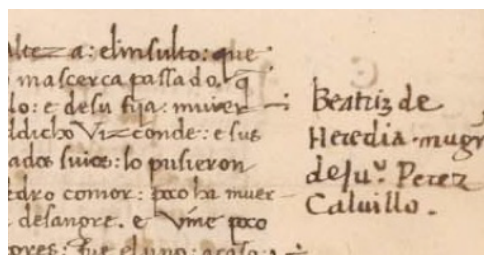 Alteza: elinsulto: que
mascerca passado. q̄
lo: e desu fija: muier
ddicho Vizconde: e sus
ados suios: lo pusieron
edro comor: poco ha muer
desangre. e Vime poco
ores: fue el uno: acasa:
Beatriz de
Heredia mugr
de Ju.º Perez
Calvillo.